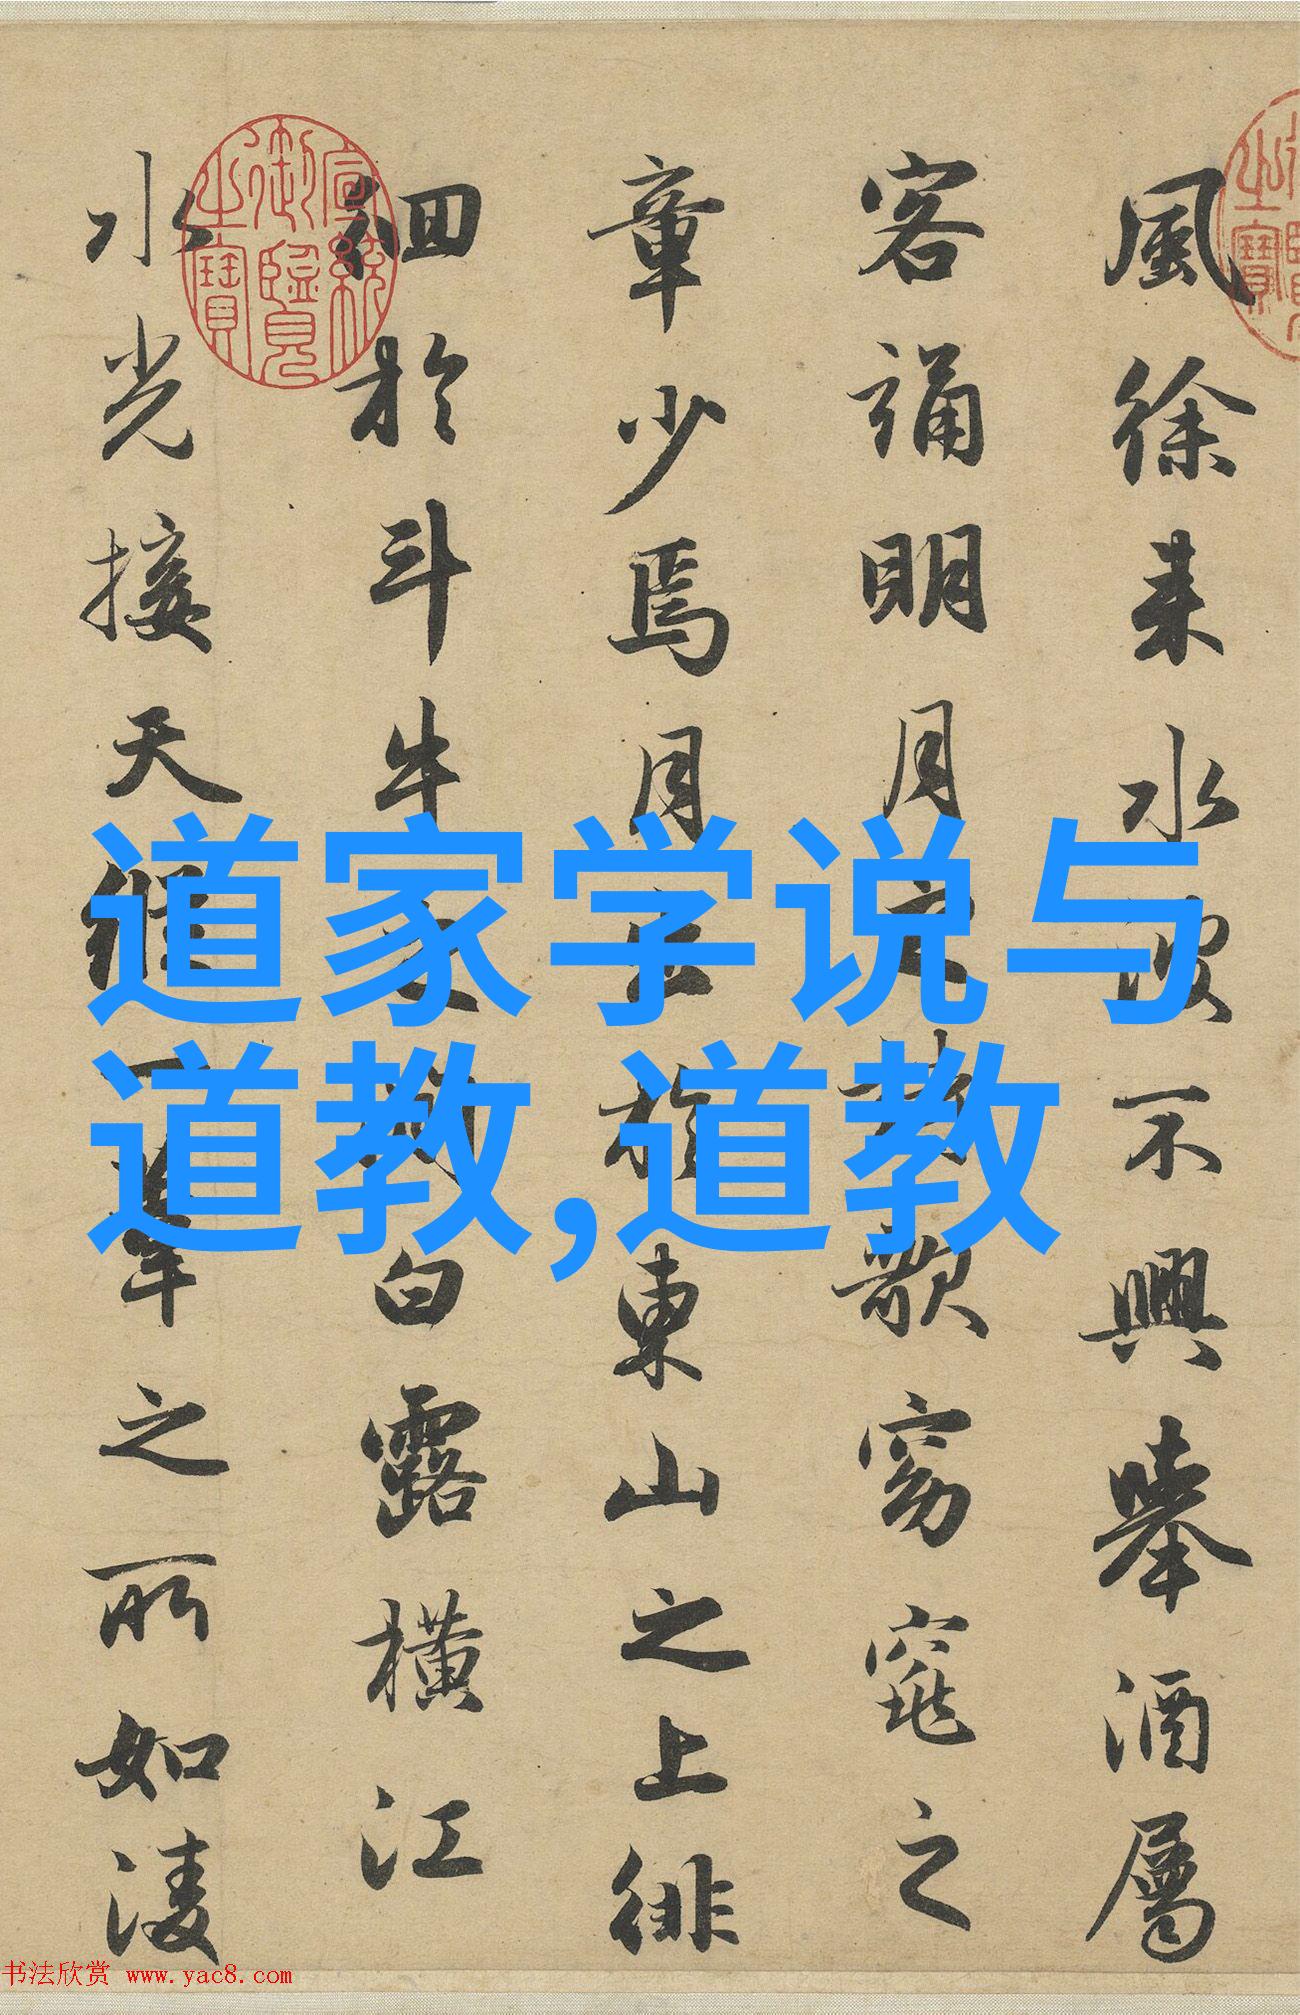 風徐来水波不興舉酒屬
客誦明月之詩歌窈窕之
章少焉月出於東山之上徘
徊於斗牛之間白露橫江
水光接天縱一葦之所如凌
宣統御覽之寶
道家学说与
道教,道教
书法欣赏 www.yac8.com